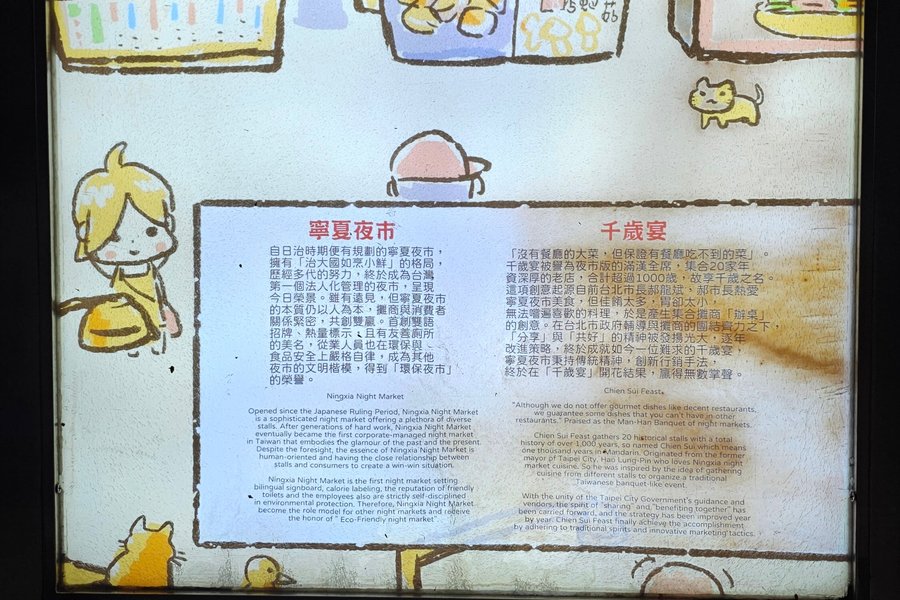 菇
寧夏夜市
自日治時期便有規劃的寧夏夜市，
擁有「治大國如烹小鮮」的格局，
歷經多代的努力，終於成為台灣
第一個法人化管理的夜市，呈現
今日榮景。雖有遠見，但寧夏夜市
的本質仍以人為本，攤商與消費者
關係緊密，共創雙贏。首創雙語
招牌、熱量標示、且有友善廁所
的美名，從業人員也在環保與
食品安全上嚴格自律，成為其他
夜市的文明楷模，得到「環保夜市」
的榮譽。
Ningxia Night Market
Opened since the Japanese Ruling Period, Ningxia Night Market
is a sophisticated night market offering a plethora of diverse
stalls. After generations of hard work, Ningxia Night Market
eventually became the first corporate-managed night market
in Taiwan that embodies the glamour of the past and the present.
Despite the foresight, the essence of Ningxia Night Market is
human-oriented and having the close relationship between
stalls and consumers to create a win-win situation.
Ningxia Night Market is the first night market setting
bilingual signboard, calorie labeling, the reputation of friendly
toilets and the employees also are strictly self-disciplined
in environmental protection. Therefore, Ningxia Night Market
become the role model for other night markets and receive
the honor of " Eco-Friendly night market"
千歲宴
「沒有餐廳的大菜，但保證有餐廳吃不到的菜」。
千歲宴被譽為夜市版的滿漢全席，集合20家年
資深厚的老店，合計超過1000歲，故享千歲之名。
這項創意起源自前台北市長郝龍斌，郝市長熱愛
寧夏夜市美食，但佳餚太多，胃卻太小，
無法嚐遍喜歡的料理，於是產生集合攤商「辦桌」
的創意。在台北市政府輔導與攤商的團結齊力之下，
「分享」與「共好」的精神被發揚光大，逐年
改進策略，終於成就如今一位難求的千歲宴，
寧夏夜市秉持傳統精神，創新行銷手法，
終於在「千歲宴」開花結果，贏得無數掌聲。
Chien Sui Feast
"Although we do not offer gourmet dishes like decent restaurants,
we guarantee some dishes that you can't have in other
restaurants. " Praised as the Man-Han Banquet of night markets.
Chien Sui Feast gathers 20 historical stalls with a total
history of over 1,000 years, so named Chien Sui which means
one thousand years in Mandarin. Originated from the former
mayor of Taipei City, Hao Lung-Pin who loves Ningxia night
market cuisine. So he was inspired by the idea of gathering
cuisine from different stalls to organize a traditional
Taiwanese banquet-like event.
With the unity of the Taipei City Government's guidance and
vendors, the spirit of "sharing" and "benefiting together" has
been carried forward, and the strategy has been improved year
by year. Chien Sui Feast finally achieve the accomplishment
by adhering to traditional spirits and innovative marketing tactics.